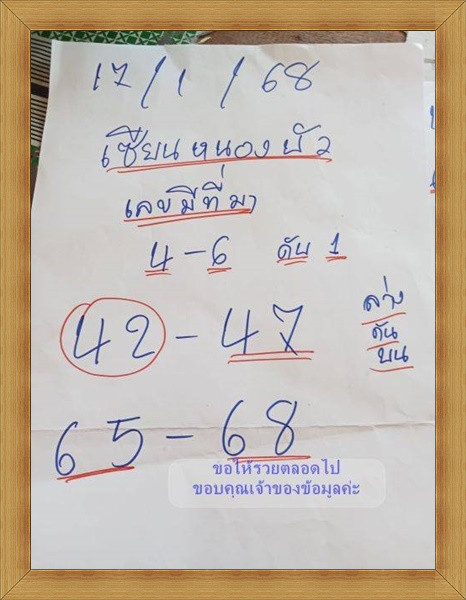 17/1/68
เซียนหนองบัว
เลขมีที่มา
4-6 ดับ 1
42-47
ล่าง
กัน
บน
65-68
ขอให้รวยตลอดไป
ขอบคุณเจ้าของข้อมูลค่ะ